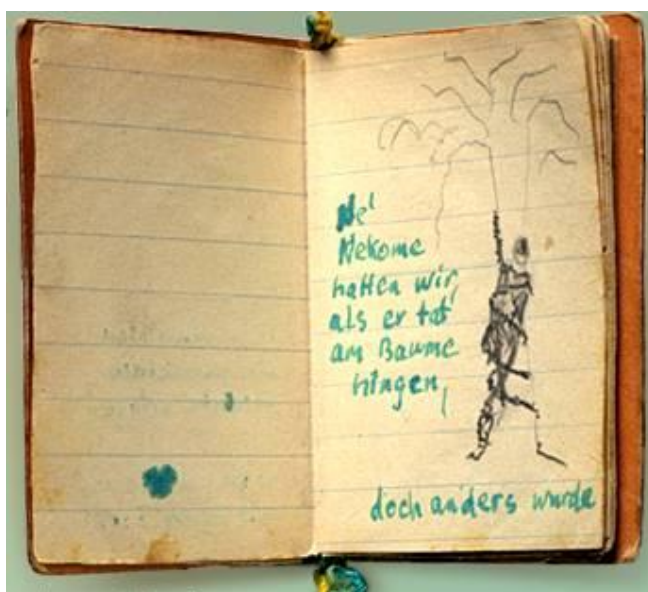 Ne'
Nekome
hatten wir,
als er tot
am Baume
hingen,
doch anders wurde